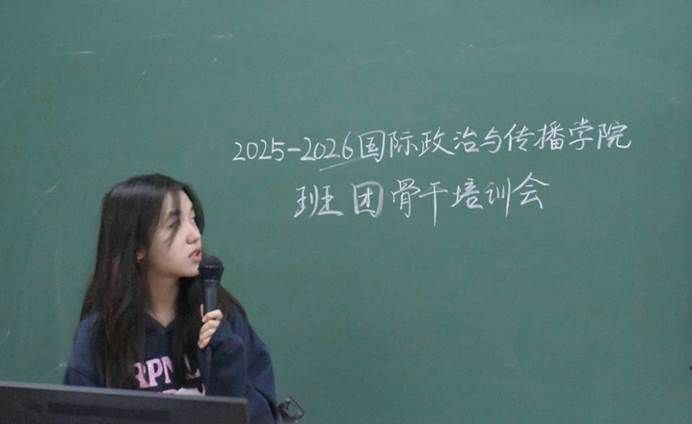 2025-2026国际政治与传播学院
班团骨干培训会